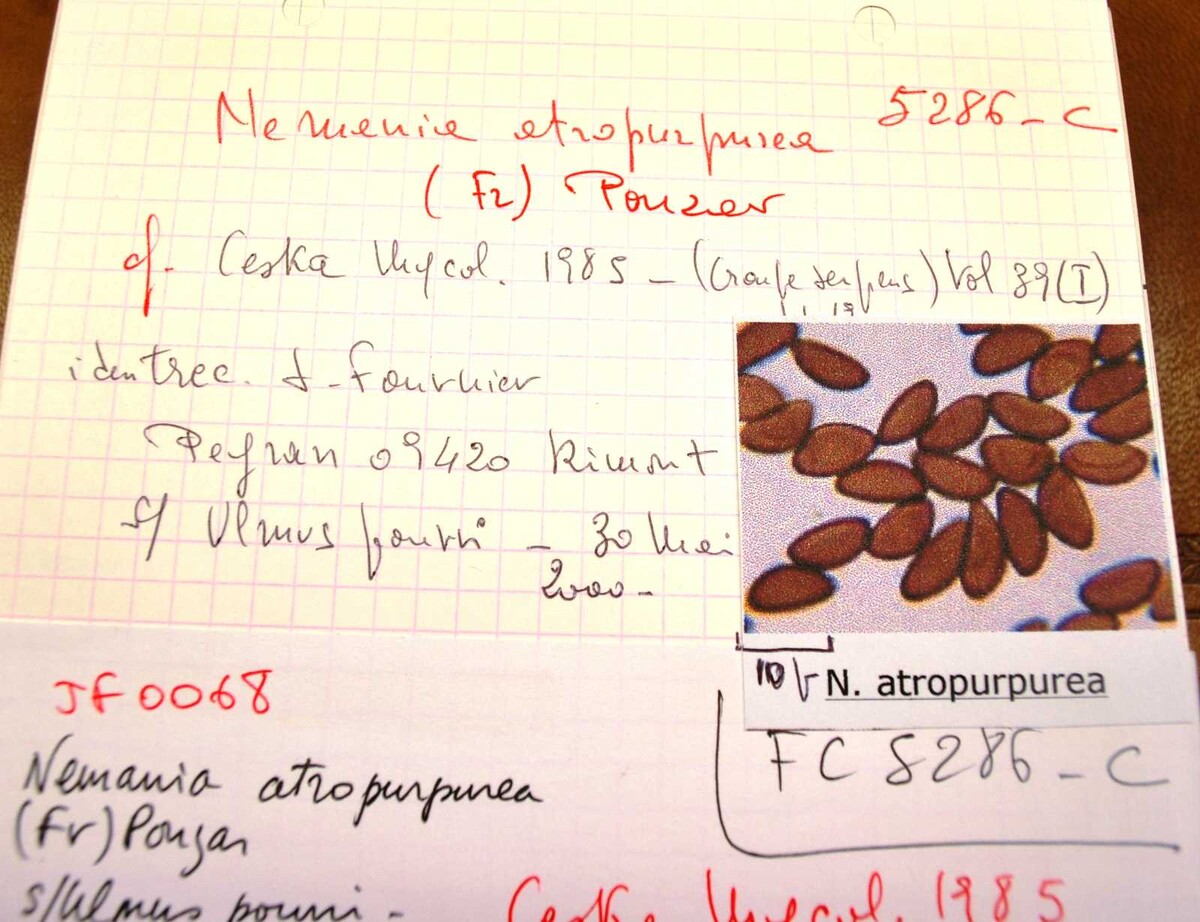 Nemania atropurpurea 5286-C
(Fr) Pouzar
cf. Ceska Mycol. 1985 - (Groupe serpens) Vol 39(I)
ident rec. J-Fournier
Peyrau 09420 Rimont
s/ Ulmus pourri - 30 Mai
2000 -
10 μ N. atropurpurea
JF0068
FC 5286-C
Nemania atropurpurea
(Fr) Pouzar
s/Ulmus pourri - Ceska Mycol. 1985